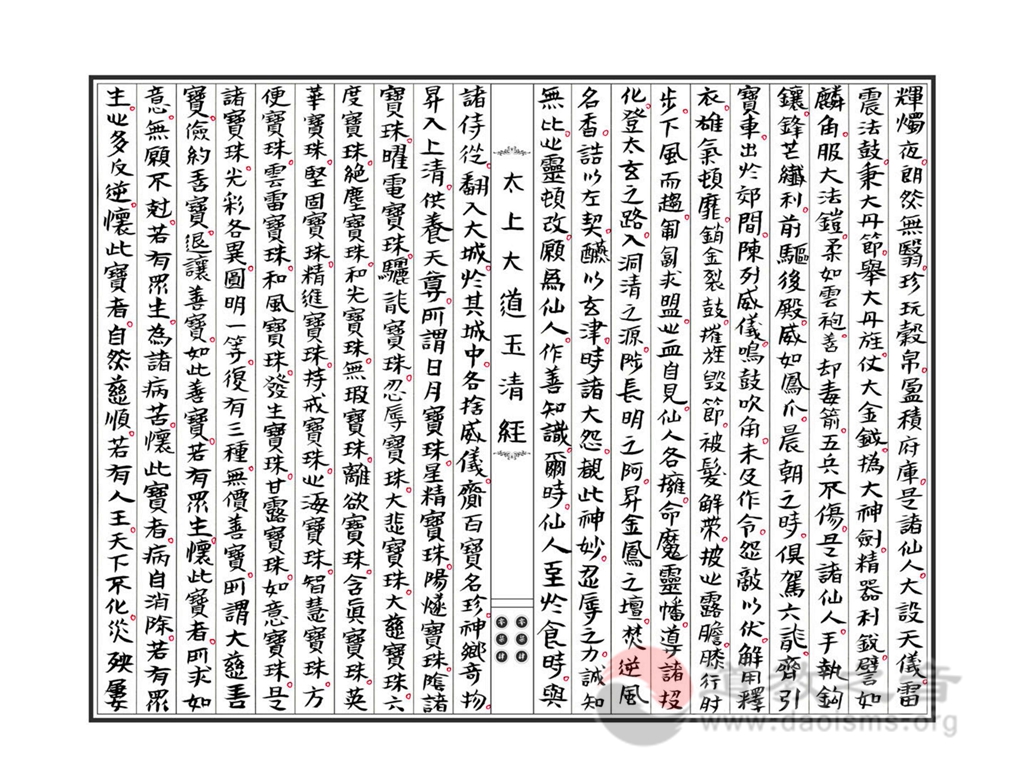 輝燭夜朗然無翳珍玩縠帛盈積府庫是諸仙人大設天儀雷
震法鼓秉大丹節舉大丹旌仗大金鉞撝大神劍精器利銳譬如
麟角服大法鎧柔如雲袍善却毒箭五兵不傷是諸仙人手執鉤
鑲鋒芒纖利前驅後殿威如鳳爪晨朝之時俱駕六龍齊引
寶車出於郊間陳列威儀鳴鼓吹角未及作令怨敵以伏解甲釋
衣雄氣頓靡銷金裂鼓摧旌毀節被髮解帶披心露膽膝行肘
步下風而趨匍匐求盟心血自見仙人各擁命魔靈幡導諸招
化登太玄之路入洞清之源陟長明之阿昇金鳳之壇焚逆風
名香誥以左契醼以玄津時諸大怨覩此神妙忍辱之力誠知
無比心靈頓改願為仙人作善知識爾時仙人至於食時與
太上大道玉清經
諸侍從翻入大城於其城中各捨威儀齎百寶名珍神鄉奇物
昇入上清供養天尊所謂日月寶珠星精寶珠陽燧寶珠陰諸
寶珠曜電寶珠驪龍寶珠忍辱寶珠大悲寶珠大慈寶珠六
度寶珠絕塵寶珠和光寶珠無瑕寶珠離欲寶珠含真寶珠英
華寶珠堅固寶珠精進寶珠持戒寶珠心海寶珠智慧寶珠方
便寶珠雲雷寶珠和風寶珠發生寶珠甘露寶珠如意寶珠是
諸寶珠光彩各異圓明一等復有三種無價善寶所謂大慈善
寶儉約善寶退讓善寶如此善寶若有眾生懷此寶者所求如
意無願不尅若有眾生為諸病苦懷此寶者病自消除若有眾
生心多反逆懷此寶者自然慈順若有人王天下不化災殃屢
道教之音
www.daoisms.org